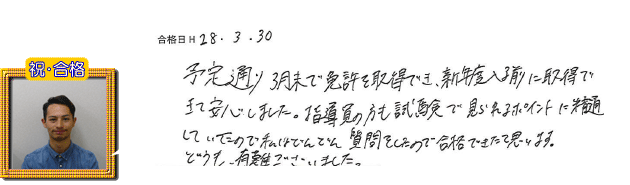 合格日 H 28.3.30
祝・合格
予定通り3月末で免許を取得でき、新年度入る前に取得で
きて安心しました。指導員の方も試験で見られるポイントに精通
していたので私はどんどん質問をしたので合格できたと思います。
どうも有難うございました。